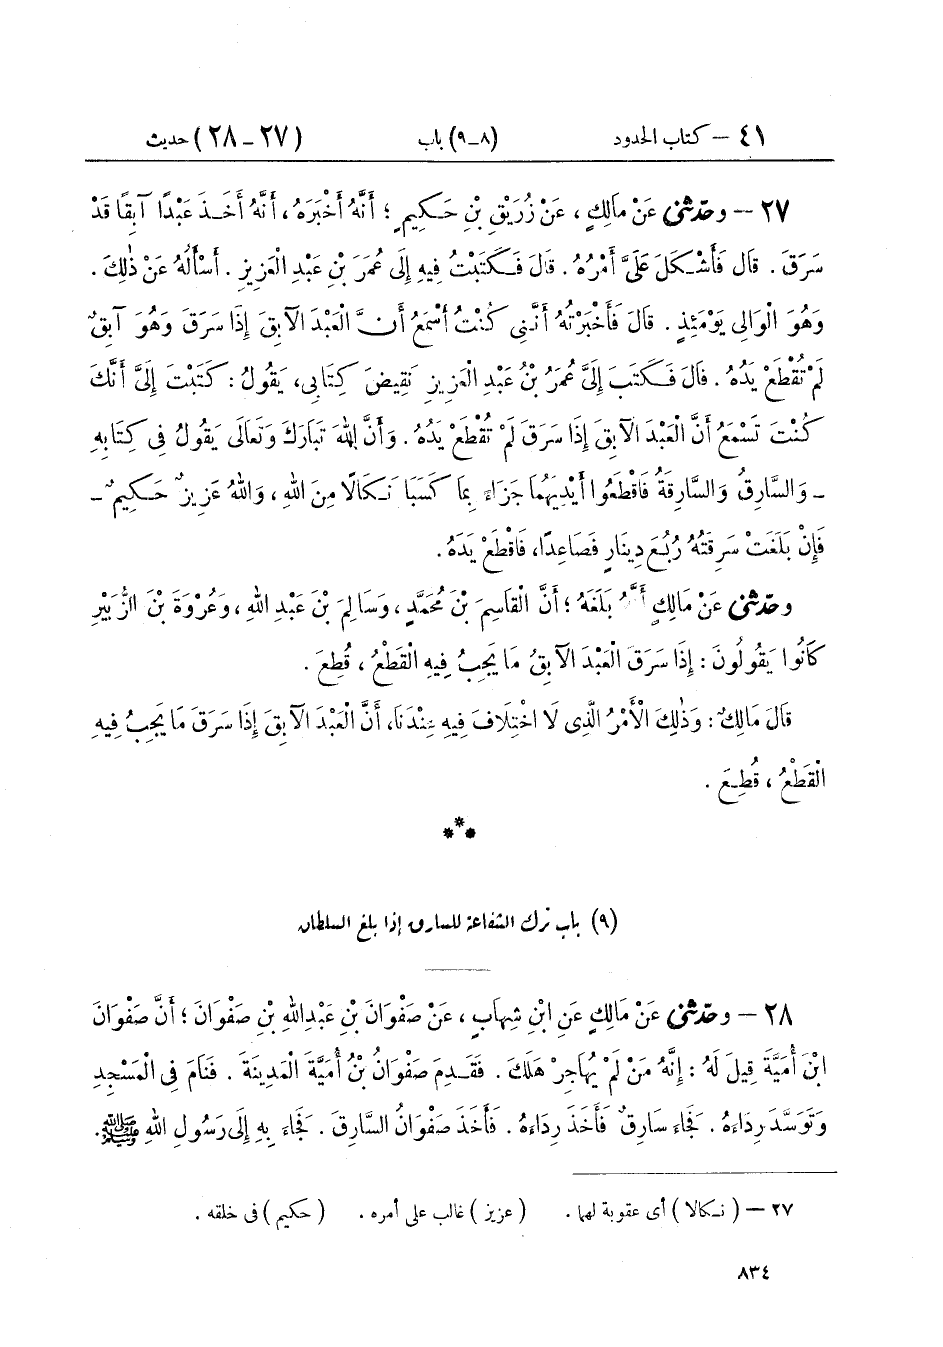 ٤١ – كتاب الحدود (٨_٩) باب (٢٧_٢٨) حديث
٢٧ – وحدثني عَنْ مَالِكٍ، عَنْ زُرَيْقِ بْنِ حَكِيمٍ؛ أَنَّهُ أَخْبَرَهُ، أَنَّهُ أَخَذَ عَبْدًا آبِقًا قَدْ
سَرَقَ. قَالَ فَأَشْكَلَ عَلَىَّ أَمْرُهُ. قَالَ فَكَتَبْتُ فِيهِ إِلَى عُمَرَ بْنِ عَبْدِ الْعَزِيزِ. أَسْأَلُهُ عَنْ ذٰلِكَ.
وَهُوَ الْوَالِى يَوْمَئِذٍ. قَالَ فَأَخْبَرْتُهُ أَنَّنِى كُنْتُ أَسْمَعُ أَنَّ الْعَبْدَ الْآبِقَ إِذَا سَرَقَ وَهُوَ آبِقٌ
لَمْ تُقْطَعْ يَدُهُ. قَالَ فَكَتَبَ إِلَىَّ عُمَرُ بْنُ عَبْدِ الْعَزِيزِ نَقِيضَ كِتَابِى، يَقُولُ: كَتَبْتَ إِلَىَّ أَنَّكَ
كُنْتَ تَسْمَعُ أَنَّ الْعَبْدَ الْآبِقَ إِذَا سَرَقَ لَمْ تُقْطَعْ يَدُهُ. وَأَنَّ اللهَ تَبَارَكَ وَتَعَالَى يَقُولُ فِى كِتَابِهِ
ـ وَالسَّارِقُ وَالسَّارِقَةُ فَاقْطَعُوا أَيْدِيَهُمَا جَزَاءً بِمَا كَسَبَا نَكَالًا مِنَ اللهِ، وَاللهُ عَزِيزٌ حَكِيمٌ ـ
فَإِنْ بَلَغَتْ سَرِقَتُهُ رُبُعَ دِينَارٍ فَصَاعِدًا، فَاقْطَعْ يَدَهُ.
وحدثني عَنْ مَالِكٍ أَنَّهُ بَلَغَهُ؛ أَنَّ الْقَاسِمَ بْنَ مُحَمَّدٍ، وَسَالِمَ بْنَ عَبْدِ اللهِ، وَعُرْوَةَ بْنَ الزُّبَيْرِ
كَانُوا يَقُولُونَ: إِذَا سَرَقَ الْعَبْدُ الْآبِقُ مَا يَجِبُ فِيهِ الْقَطْعُ، قُطِعَ.
قَالَ مَالِكٌ: وَذٰلِكَ الْأَمْرُ الَّذِى لَا اخْتِلَافَ فِيهِ عِنْدَنَا، أَنَّ الْعَبْدَ الْآبِقَ إِذَا سَرَقَ مَا يَجِبُ فِيهِ
الْقَطْعُ، قُطِعَ.
***
(٩) باب ترك الشفاعة للسارق إذا بلغ السلطان
٢٨ – وحدثني عَنْ مَالِكٍ عَنِ ابْنِ شِهَابٍ، عَنْ صَفْوَانَ بْنِ عَبْدِ اللهِ بْنِ صَفْوَانَ؛ أَنَّ صَفْوَانَ
ابْنَ أُمَيَّةَ قِيلَ لَهُ: إِنَّهُ مَنْ لَمْ يُهَاجِرْ هَلَكَ. فَقَدِمَ صَفْوَانُ بْنُ أُمَيَّةَ الْمَدِينَةَ. فَنَامَ فِى الْمَسْجِدِ
وَتَوَسَّدَ رِدَاءَهُ. فَجَاءَ سَارِقٌ فَأَخَذَ رِدَاءَهُ. فَأَخَذَ صَفْوَانُ السَّارِقَ. فَجَاءَ بِهِ إِلَى رَسُولِ اللهِ ﷺ.
٢٧ – (نكالا) أى عقوبة لهما. (عزيز) غالب على أمره. (حكيم) فى خلقه.
٨٣٤